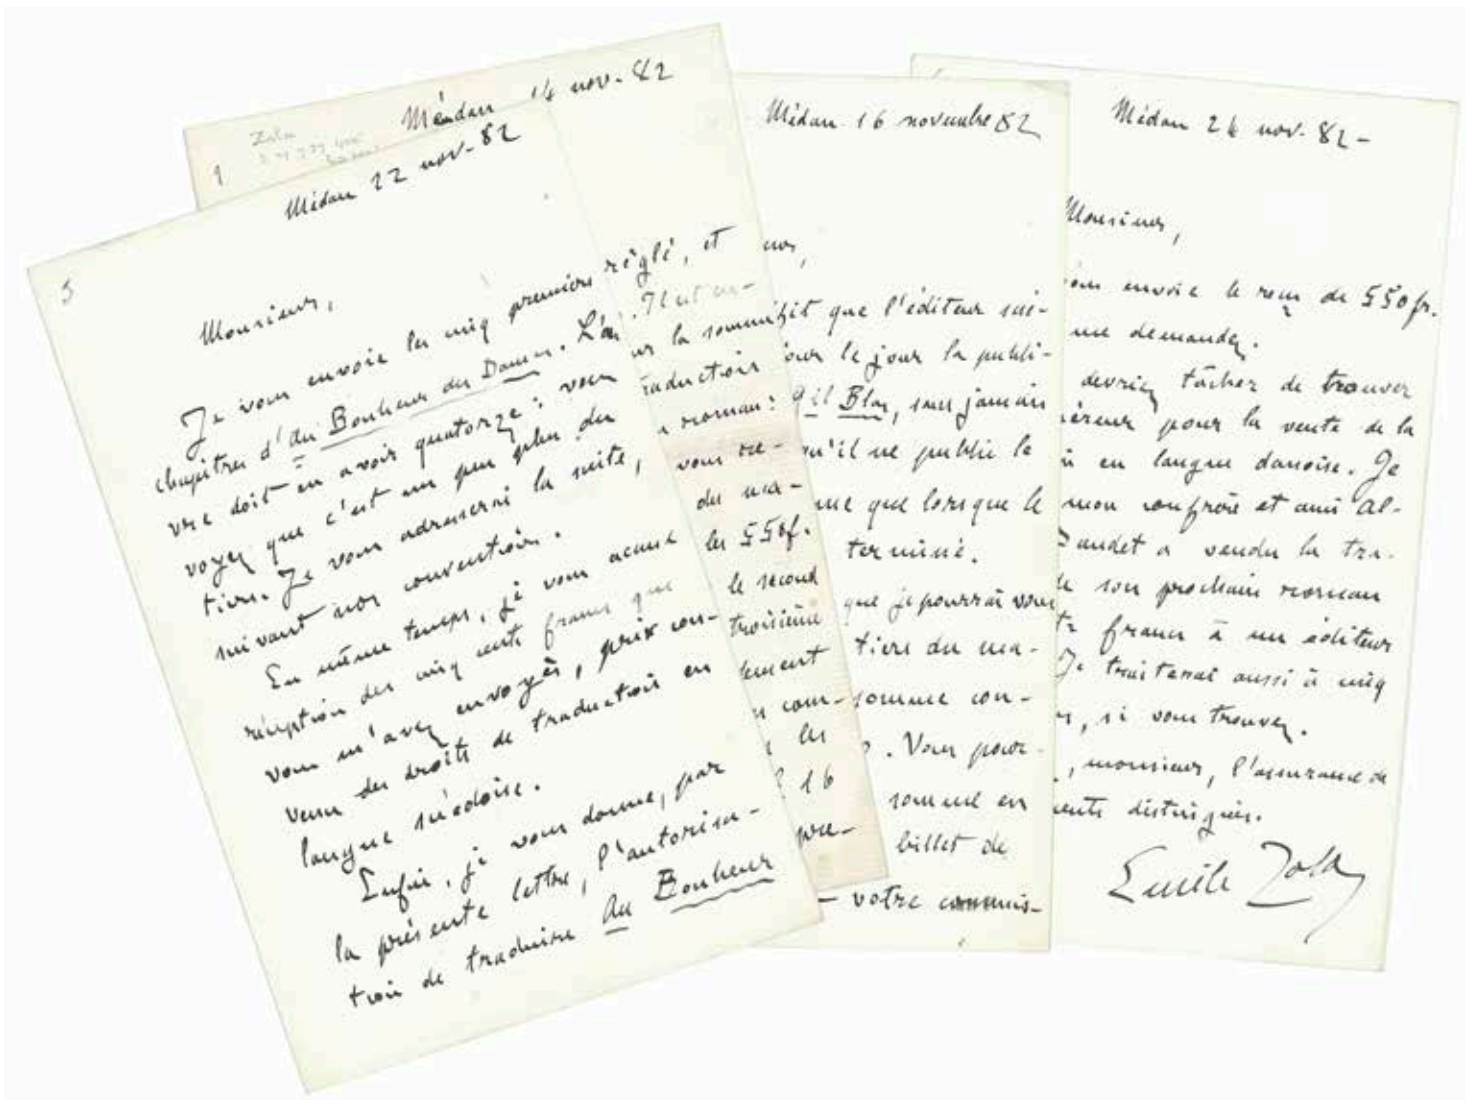 5
Médan 22 nov. 82
Monsieur,
Je vous envoie les cinq premiers
chapitres d'Au Bonheur des Dames. L'œu
vre doit en avoir quatorze : vous
voyez que c'est un peu plus du
tiers. Je vous adresserai la suite,
suivant nos conventions.
En même temps, je vous accuse
réception des cinq cents francs que
vous m'avez envoyés, prix con-
venu des droits de traduction en
langue suédoise.
Enfin, je vous donne, par
la présente lettre, l'autorisa-
tion de traduire Au Bonheur
1
Zola
Médan 14 nov. 82
réglé, et
. Il est en-
ur la somme
traduction
roman :
vous re-
du ma-
les 550f.
le second
troisième
lement
com-
les
16
pre-
Médan 16 novembre 82
eur,
it que l'éditeur sui-
jour le jour la publi-
Gil Blas, sans jamais
qu'il ne publie le
me que lorsque le
terminé.
que je pourrai vous
tiers du ma-
somme con-
. Vous pour-
somme en
billet de
votre commis-
Médan 24 nov. 82 -
Monsieur,
vous envoie le reçu de 550 fr.
me demandez.
devriez tâcher de trouver
éreur pour la vente de la
n en langue danoise. Je
mon confrère et ami Al-
Daudet a vendu la tra-
de son prochain roman
francs à un éditeur
Je traiterai aussi à cinq
, si vous trouvez.
, monsieur, l'assurance de
ents distingués.
Emile Zola